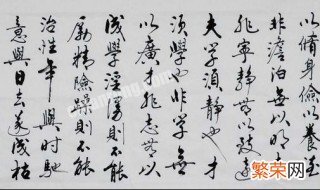 以脩身儉以養
非澹泊無以明
非寧静無以致遠
夫学須静也才
須学也非学無
以廣才非志無以
成学淫慢則不能
勵精險躁則不能
治性年與時馳
意與日去遂成枯
繁荣网